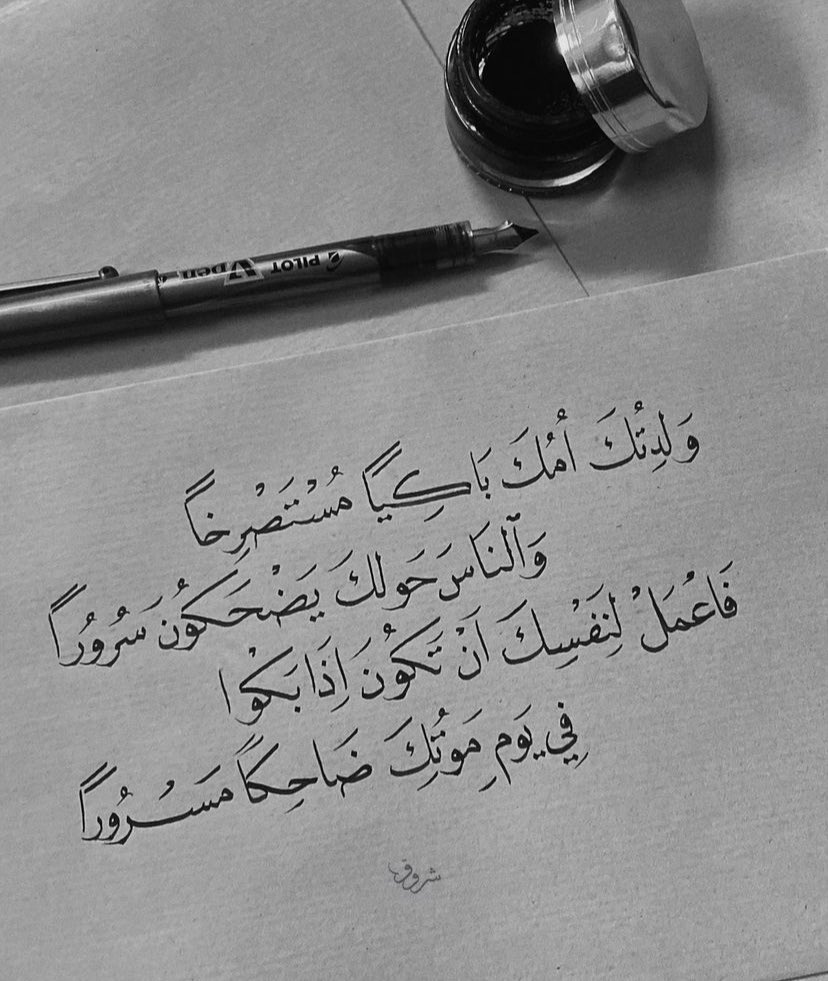 PILOT
Vpen
وَلِدتُكَ أمُكَ بَاكِيَاً مُسْتَصْرِخاً
وَٱلنَاسَ حَولكَ يَضْحَكُونَ سَرُوُراً
فَاعْمَلْ لِنَفْسِكَ اَنْ تَكُونَ اِذَا بَكَوْا
فِي يَومِ مَوتُكِ ضَاحِكاً مَسَرُوُراً
شروق